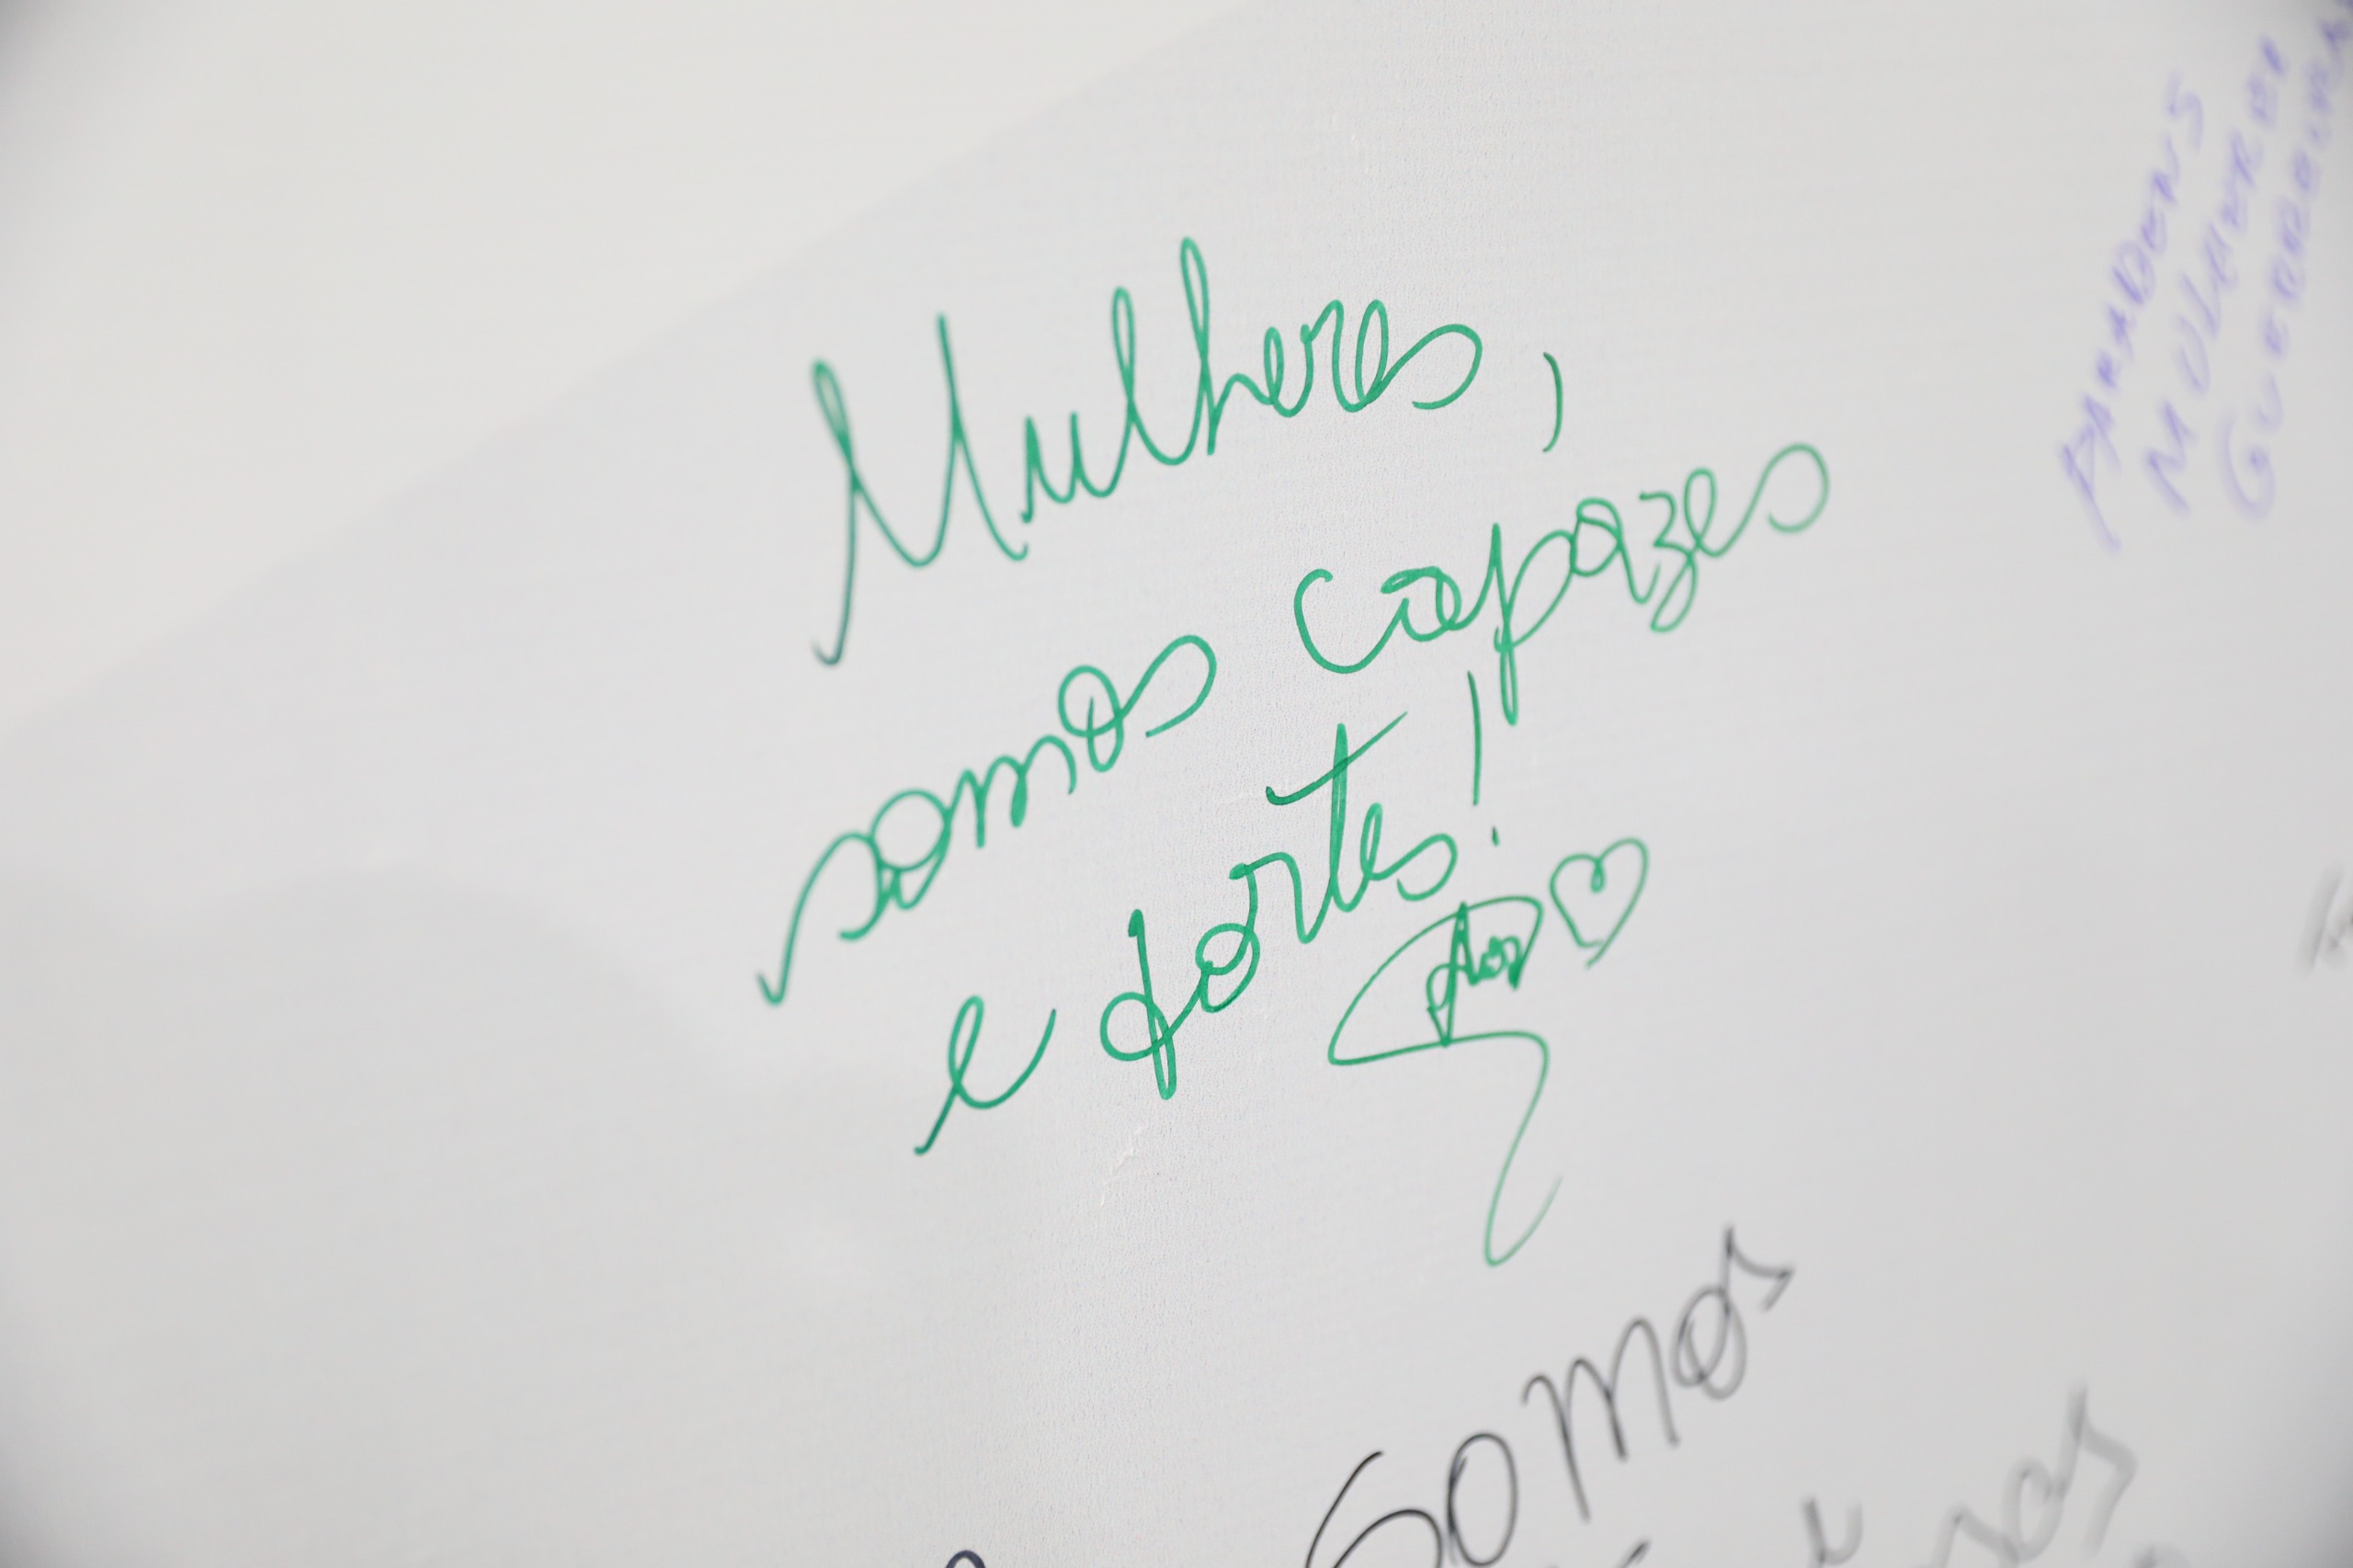 Mulheres,
somos capazes
e fortes!
PARABENS
MULHERES
Somos